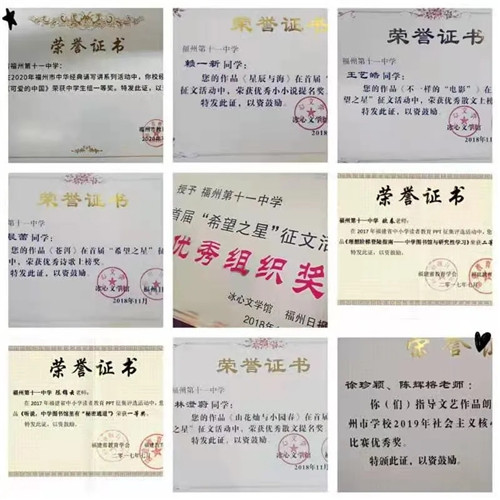 荣誉证书
福州第十一中学：
2020年福州市中华经典诵写讲系列活动中，你校
可爱的中国》荣获中学生组一等奖。特发此证，以资
福州第十一中学
赖一新同学：
您的作品《星辰与海》在首届
征文活动中，荣获优秀小小说提名奖
特发此证，以资鼓励。
冰心文学馆
2018年11月
荣誉证书
福州第十一中学
王艺皓同学：
您的作品《不一样的“电影”》在
望之星”征文活动中，荣获优秀散文上榜
特发此证，以资鼓励。
冰心文学馆
2018年11月
荣誉证书
福州第十一中学
蕾同学：
您的作品《苍洱》在首届“希望之星”
动中，荣获优秀诗歌上榜奖。
特发此证，以资鼓励。
冰心文学馆
2018年11月
授予 福州第十一中学
首届“希望之星”征文活
优秀组织奖
冰心文学馆 福州日报
2018年
荣誉证书
福州第十一中学
老师：
在2017年福建省中小学读者教育PPT征集评选活动中，
特发此证，以资鼓励。
福建省教育学会
二〇一七年
荣誉证书
福州第十一中学
老师：
在2017年福建省中小学读者教育PPT征集评选活动中，您
《听说，中学图书馆里有“秘密通道”》荣获一等奖。
特发此证，以资鼓励。
福建省教育学会
二〇一七年
荣誉证书
福州第十一中学
林澄蔚同学：
您的作品《山花烛与小园春》在首届
征文活动中，荣获优秀散文提名奖
特发此证，以资鼓励。
冰心文学馆
2018年11月
荣誉
徐珍颖、陈辉榕老师：
你（们）指导文艺作品朗
州市学校2019年社会主义核
比赛优秀奖。
特颁此证，以资鼓励。